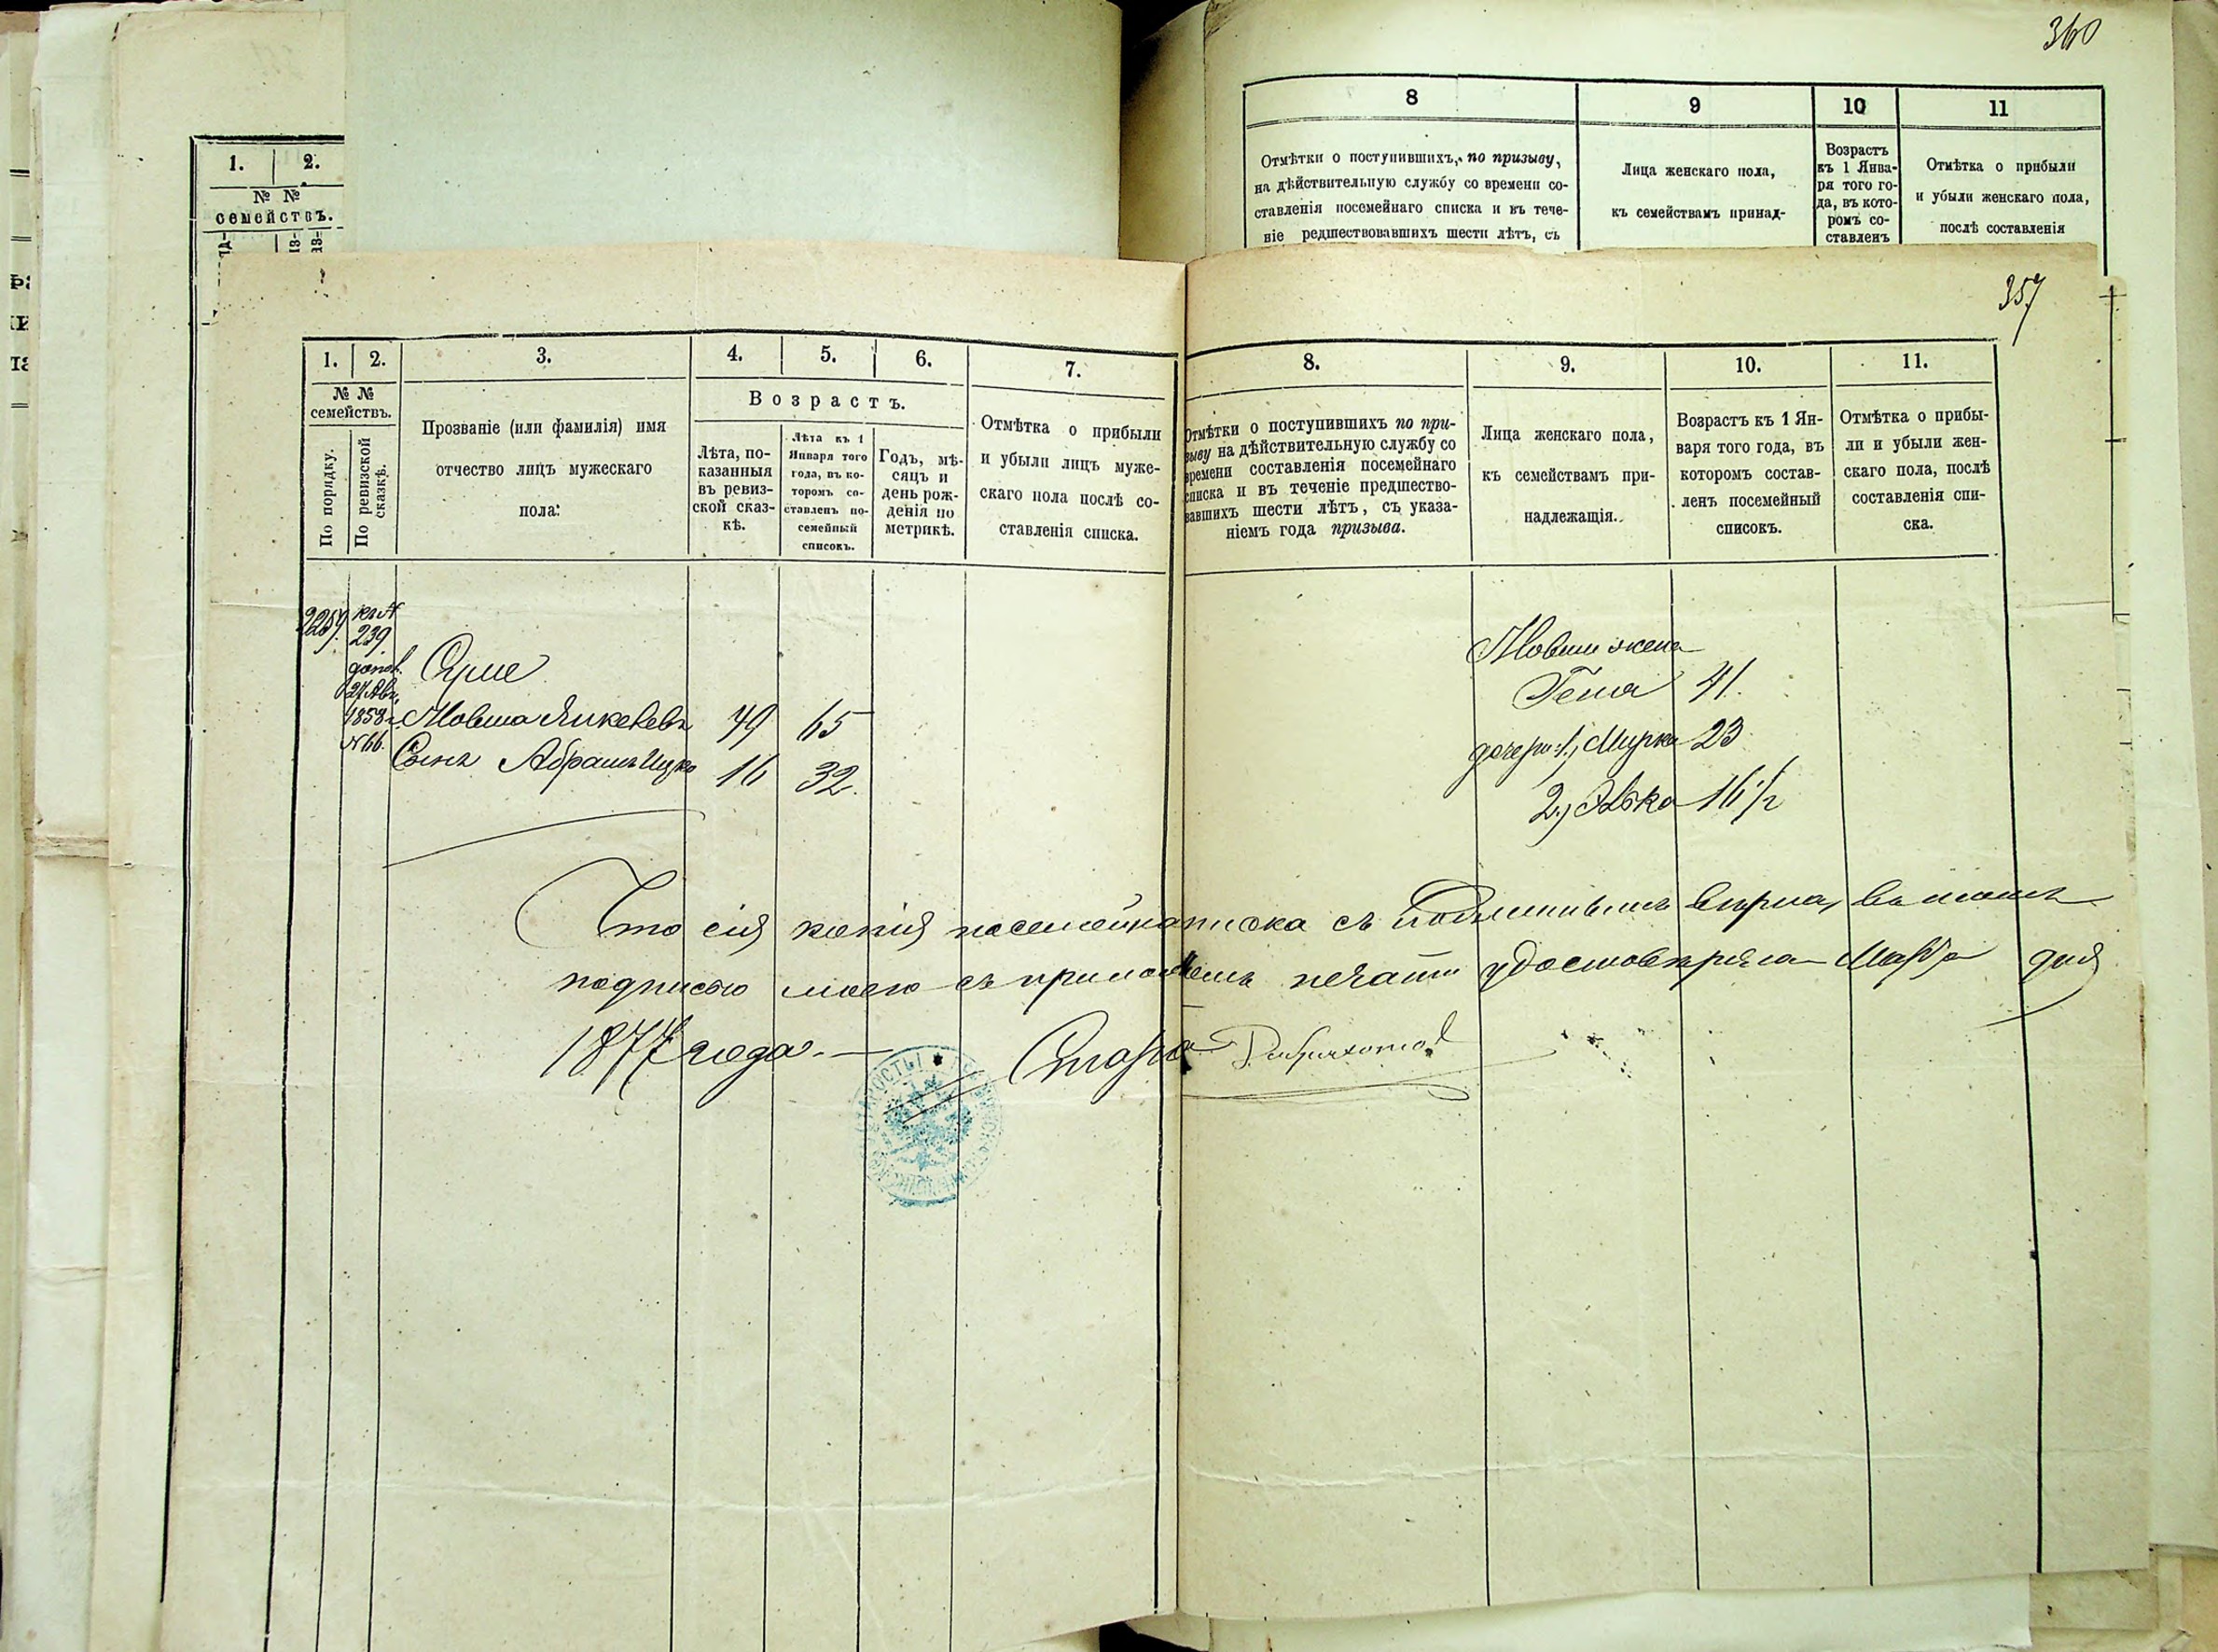 360
8 9 10 11
Отмѣтки о поступившихъ, по призыву,
на дѣйствительную службу со времени со-
ставленія посемейнаго списка и въ тече-
ніе редшествовавшихъ шести лѣтъ, съ
Лица женскаго пола,
къ семействамъ принад-
Возрастъ
къ 1 Янва-
ря того го-
да, въ кото-
ромъ со-
ставленъ
Отмѣтка о прибыли
и убыли женскаго пола,
послѣ составленія
1. 2.
№ №
семействъ.
357
1. 2. 3. 4. 5. 6. 7.
№ №
семействъ.
По порядку.
По ревизской
сказкѣ.
Прозваніе (или фамилія) имя
отчество лицъ мужескаго
пола.
Возрастъ.
Лѣта, по-
казанныя
въ ревиз-
ской сказ-
кѣ.
Лѣта къ 1
Января того
года, въ ко-
торомъ со-
ставленъ по-
семейный
списокъ.
Годъ, мѣ-
сяцъ и
день рож-
денія по
метрикѣ.
Отмѣтка о прибыли
и убыли лицъ муже-
скаго пола послѣ со-
ставленія списка.
8. 9. 10. 11.
Отмѣтки о поступившихъ по при-
зыву на дѣйствительную службу со
времени составленія посемейнаго
списка и въ теченіе предшество-
вавшихъ шести лѣтъ, съ указа-
ніемъ года призыва.
Лица женскаго пола,
къ семействамъ при-
надлежащія.
Возрастъ къ 1 Ян-
варя того года, въ
которомъ состав-
ленъ посемейный
списокъ.
Отмѣтка о прибы-
ли и убыли жен-
скаго пола, послѣ
составленія спи-
ска.
239.
1858
№ 66.
Мовша Янкелевъ 49 65
Сынъ Абрамъ Ицко 16 32.
Мовши жена
Геня 41.
дочери: 1, Мирка 23
2, 16 1/2
Что сія копія съ подлиннымъ вѣрна, въ томъ
подписью моею съ приложеніемъ печати удостовѣряю Марта дня
1877 года.
Староста